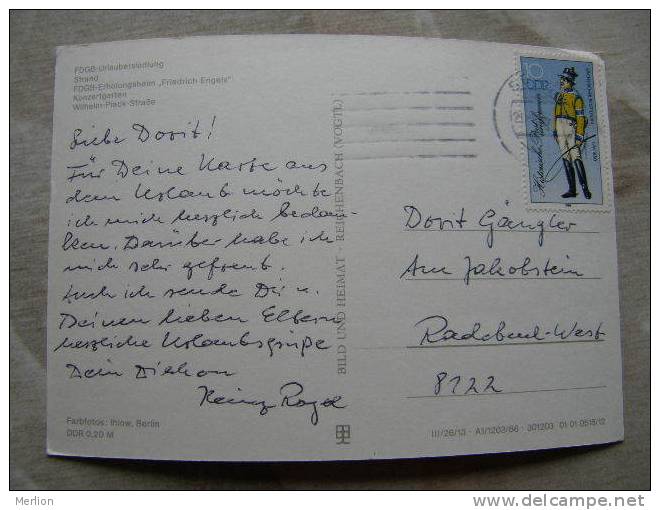 FDGB-Urlaubersiedlung
Strand
FDGB-Erholungsheim „Friedrich Engels"
Konzertgarten
Wilhelm-Pieck-Straße
Liebe Dorit!
Für Deine Karte aus
dem Urlaub möchte
ich mich herzlich bedan-
ken. Darüber habe ich
mich sehr gefreut.
Auch ich sende Dir u.
Deinen lieben Eltern
herzliche Urlaubsgrüße
Dein Diakon
Heinz
Farbfotos: Ihlow, Berlin
DDR 0,20 M
BILD UND HEIMAT · REICHENBACH (VOGTL)
10
DDR
Historische Postuniformen
Dorit Gängler
Am Jakobstein
Radebeul-West
8122
III/26/13 · A1/1203/86 · 301203 01 01 0518/12
Merlion
www.delcampe.net